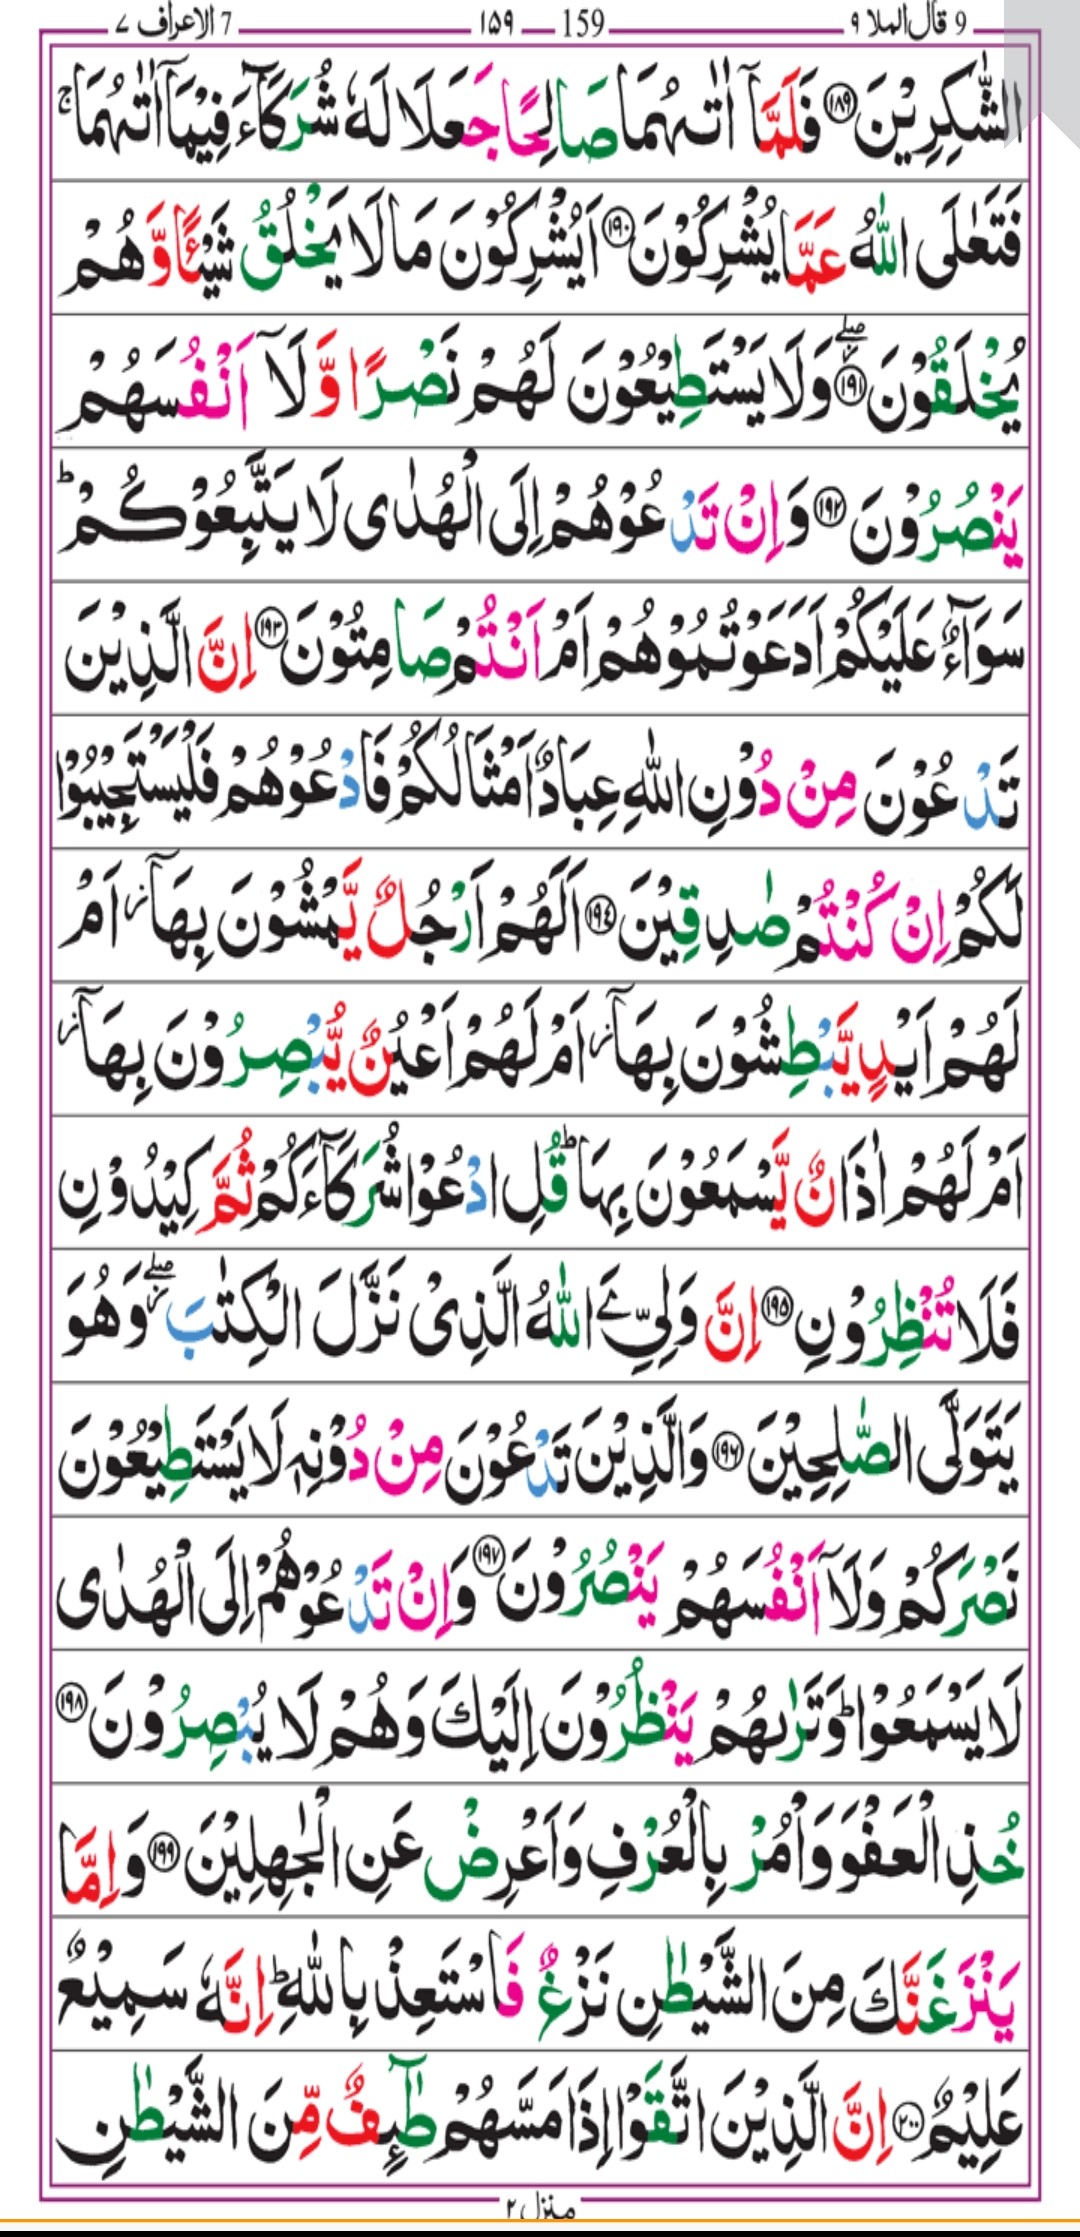 9 قال الملا ٩ — 159 — ١۵٩ — 7 الاعراف ٧
الشّٰكِرِيْنَ ﴿١٨٩﴾ فَلَمَّآ اٰتٰىهُمَا صَالِحًا جَعَلَا لَهٗ شُرَكَآءَ فِيْمَآ اٰتٰىهُمَا ۚ
فَتَعٰلَى اللّٰهُ عَمَّا يُشْرِكُوْنَ ﴿١٩٠﴾ اَيُشْرِكُوْنَ مَا لَا يَخْلُقُ شَيْـًٔا وَّ هُمْ
يُخْلَقُوْنَ ﴿١٩١﴾ ۖ وَلَا يَسْتَطِيْعُوْنَ لَهُمْ نَصْرًا وَّلَآ اَنْفُسَهُمْ
يَنْصُرُوْنَ ﴿١٩٢﴾ وَ اِنْ تَدْعُوْهُمْ اِلَى الْهُدٰى لَا يَتَّبِعُوْكُمْ ؕ
سَوَآءٌ عَلَيْكُمْ اَدَعَوْتُمُوْهُمْ اَمْ اَنْتُمْ صَامِتُوْنَ ﴿١٩٣﴾ اِنَّ الَّذِيْنَ
تَدْعُوْنَ مِنْ دُوْنِ اللّٰهِ عِبَادٌ اَمْثَالُكُمْ فَادْعُوْهُمْ فَلْيَسْتَجِيْبُوْا
لَكُمْ اِنْ كُنْتُمْ صٰدِقِيْنَ ﴿١٩٤﴾ اَلَهُمْ اَرْجُلٌ يَّمْشُوْنَ بِهَآ ؗ اَمْ
لَهُمْ اَيْدٍ يَّبْطِشُوْنَ بِهَآ ؗ اَمْ لَهُمْ اَعْيُنٌ يُّبْصِرُوْنَ بِهَآ ؗ
اَمْ لَهُمْ اٰذَانٌ يَّسْمَعُوْنَ بِهَا ؕ قُلِ ادْعُوْا شُرَكَآءَكُمْ ثُمَّ كِيْدُوْنِ
فَلَا تُنْظِرُوْنِ ﴿١٩٥﴾ اِنَّ وَلِيِّۦَ اللّٰهُ الَّذِيْ نَزَّلَ الْكِتٰبَ ۖ وَهُوَ
يَتَوَلَّى الصّٰلِحِيْنَ ﴿١٩٦﴾ وَالَّذِيْنَ تَدْعُوْنَ مِنْ دُوْنِهٖ لَا يَسْتَطِيْعُوْنَ
نَصْرَكُمْ وَلَآ اَنْفُسَهُمْ يَنْصُرُوْنَ ﴿١٩٧﴾ وَاِنْ تَدْعُوْهُمْ اِلَى الْهُدٰى
لَا يَسْمَعُوْا ؕ وَتَرٰىهُمْ يَنْظُرُوْنَ اِلَيْكَ وَهُمْ لَا يُبْصِرُوْنَ ﴿١٩٨﴾
خُذِ الْعَفْوَ وَاْمُرْ بِالْعُرْفِ وَاَعْرِضْ عَنِ الْجٰهِلِيْنَ ﴿١٩٩﴾ وَاِمَّا
يَنْزَغَنَّكَ مِنَ الشَّيْطٰنِ نَزْغٌ فَاسْتَعِذْ بِاللّٰهِ ؕ اِنَّهٗ سَمِيْعٌ
عَلِيْمٌ ﴿٢٠٠﴾ اِنَّ الَّذِيْنَ اتَّقَوْا اِذَا مَسَّهُمْ طٰٓئِفٌ مِّنَ الشَّيْطٰنِ
منزل ٢